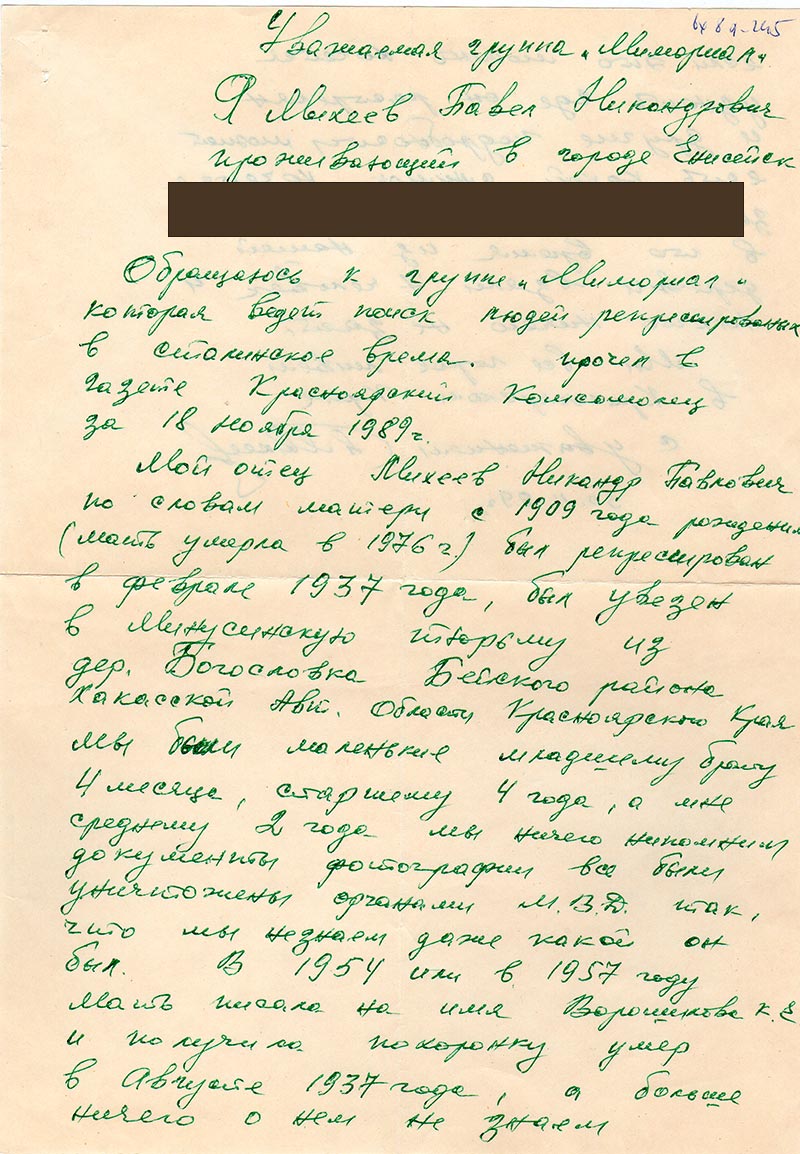 вх 6 д-245
Уважаемая группа „Мимориал"
Я Михеев Павел Никандрович
проживающий в городе Енисейск
Обращаюсь к группе „Мимориал"
которая ведет поиск людей репрессированых
в сталинское время. прочел в
газете Красноярский Комсомолец
за 18 ноября 1989г.
Мой отец Михеев Никандр Павлович
по словам матери с 1909 года рождения
(мать умерла в 1976 г.) был репрессирован
в феврале 1937 года, был увезен
в Минусинскую тюрьму из
дер. Богословка Бейского района
Хакасской Авт. Области Красноярского Края
мы были маленькие младшему брату
4 месяца, старшему 4 года, а мне
среднему 2 года мы ничего непомним
документы фотографии все были
уничтожены органами М.В.Д. так,
что мы незнаем даже какой он
был. В 1954 или в 1957 году
Мать писала на имя Ворошилова К.Е
и получила похоронку умер
в Августе 1937 года, а больше
ничего о нем не знаем